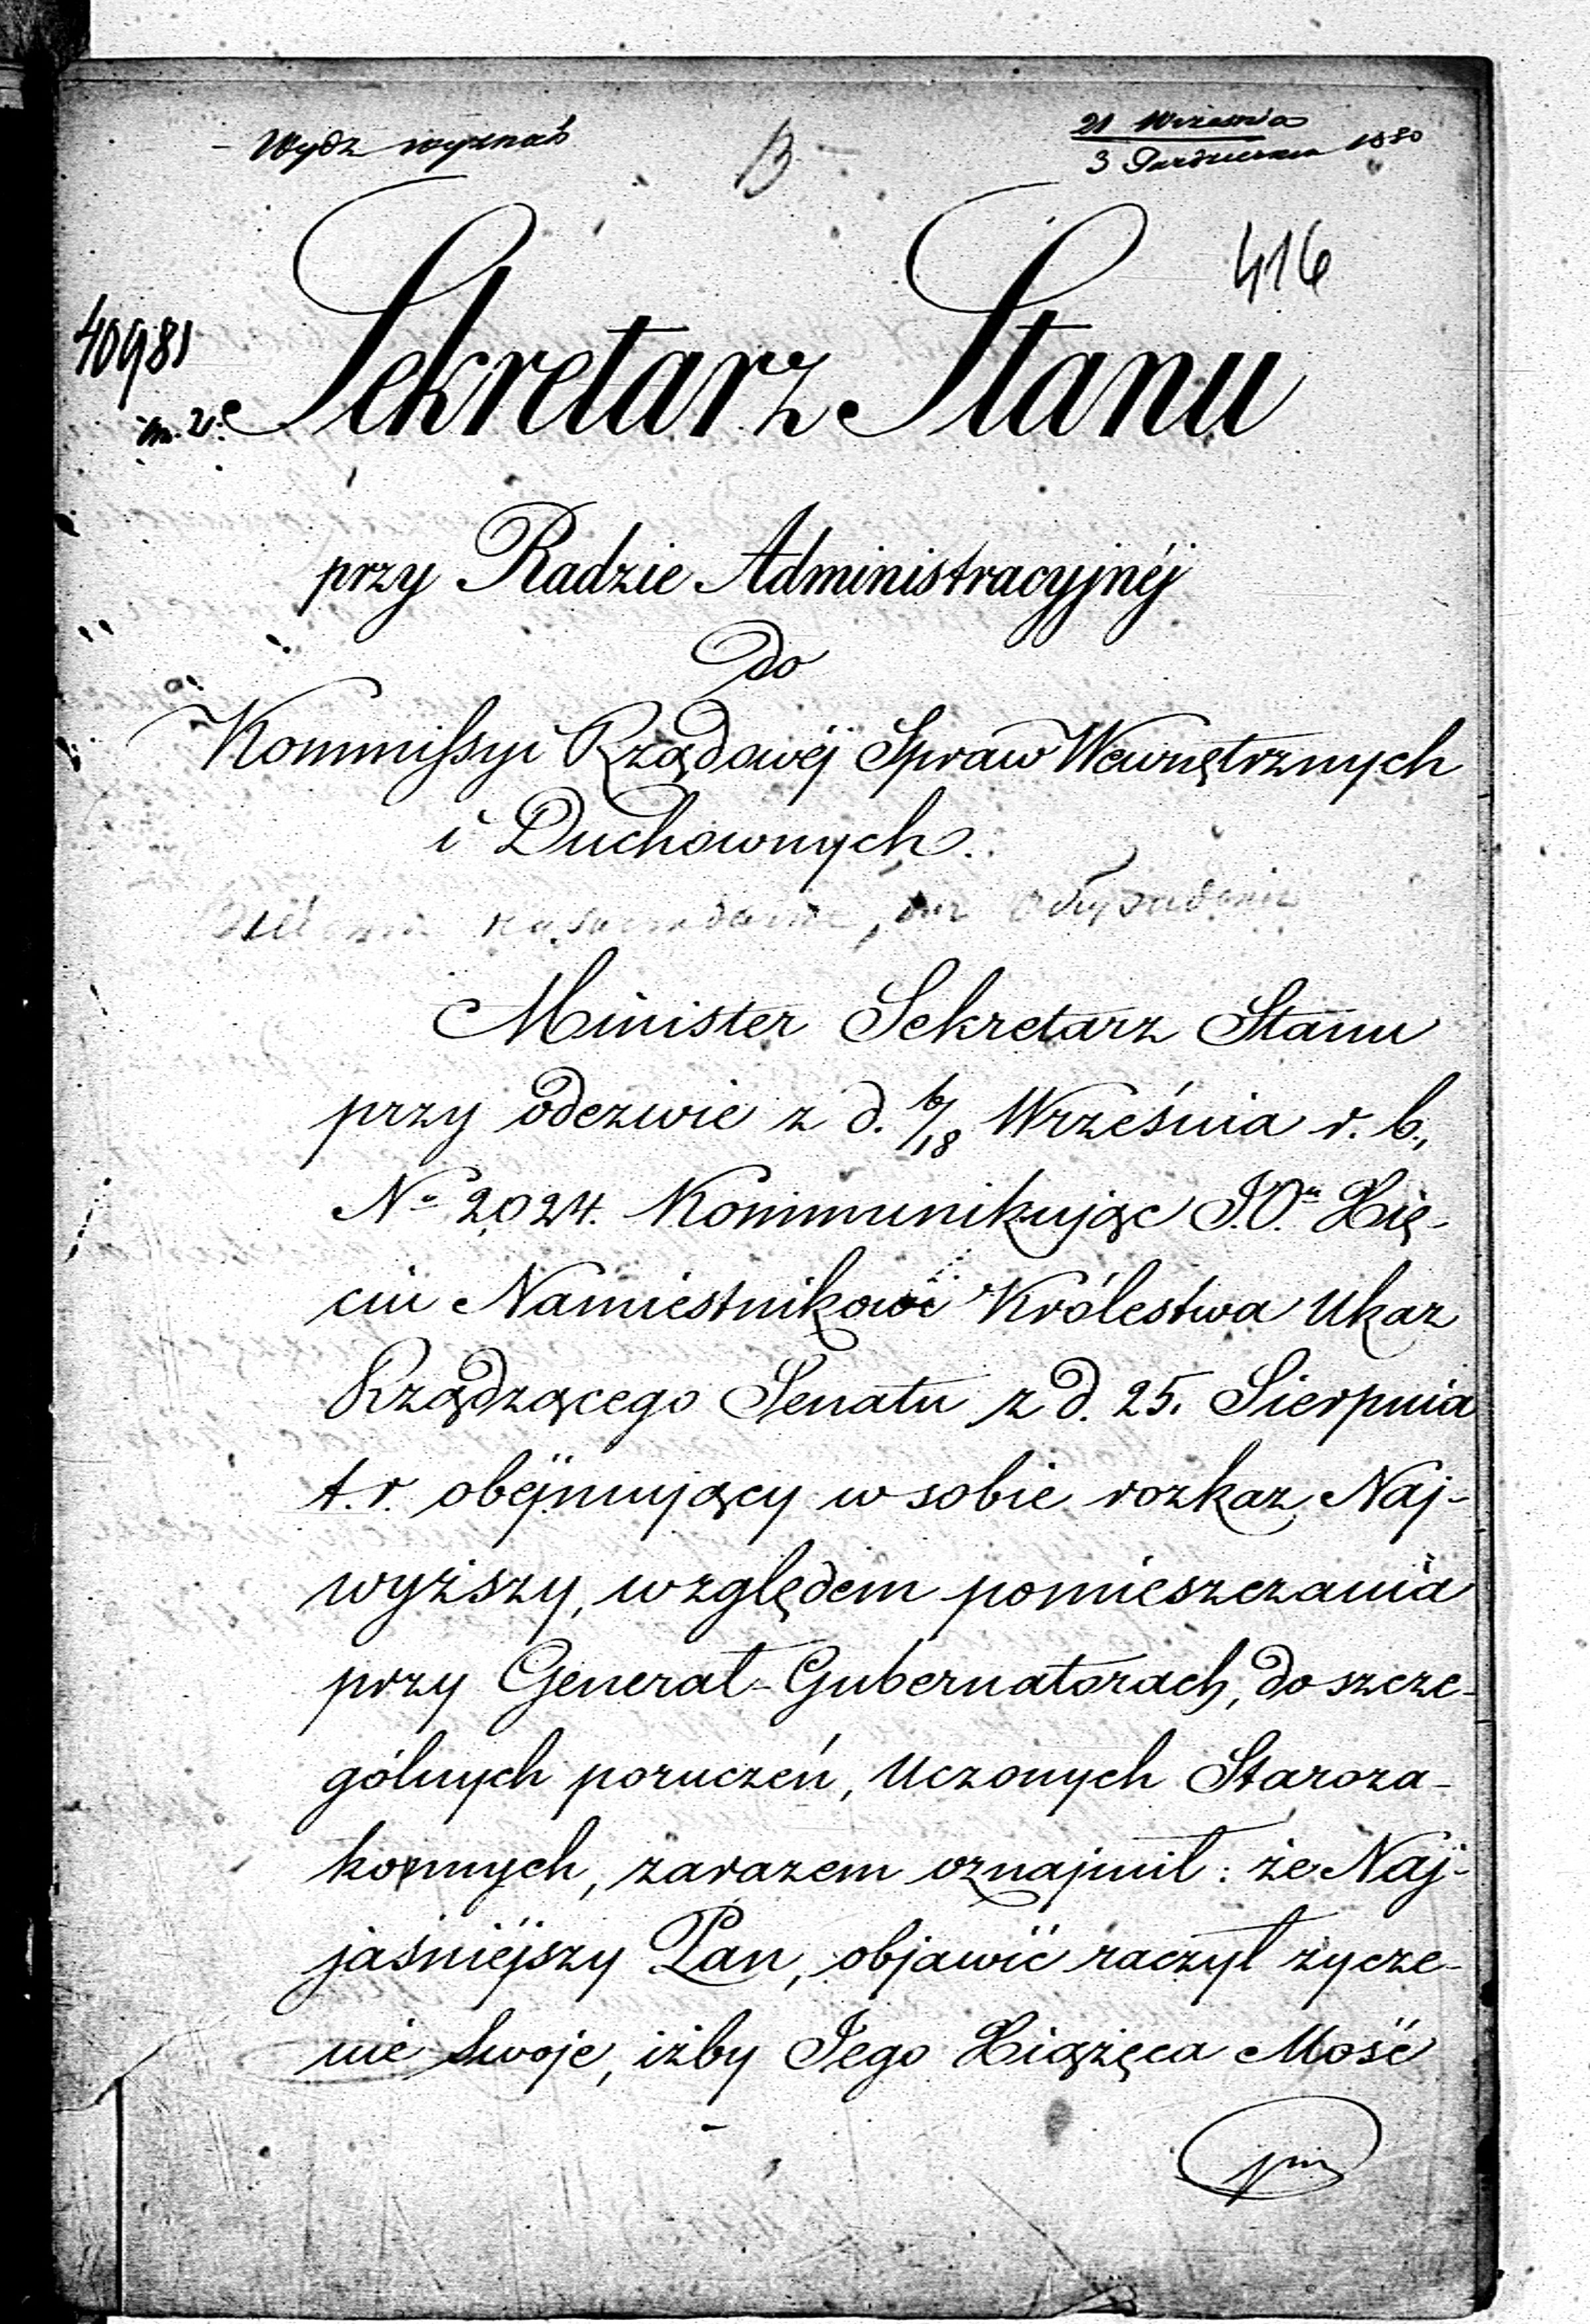 Wydz wyznań
B
21 Września
3 Października 1850
416
40981
Sekretarz Stanu
przy Radzie Administracyjnéj
do
Kommissyi Rządowéj Spraw Wewnętrznych
i Duchownych.
Minister Sekretarz Stanu
przy odezwie z d. 6/18 Września r. b.,
No 2,024. Kommunikując J.O.u Xię-
ciu Namiestnikowi Królestwa Ukaz
Rządzącego Senatu z d. 25. Sierpnia
t. r. obéjmujący w sobie rozkaz Naj-
wyższy, względem pomieszczania
przy Generał-Gubernatorach, do szcze-
gólnych poruczeń, Uczonych Staroza-
konnych, zarazem oznajmił: że Naj-
jaśniéjszy Pan, objawić raczył życze-
nie Swoje, iżby Jego Xiążęca Mość